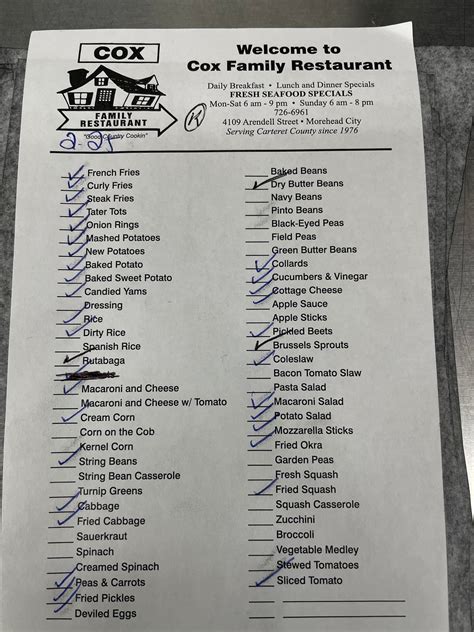 COX
FAMILY
RESTAURANT
"Good Country Cookin"
Welcome to
Cox Family Restaurant
Daily Breakfast • Lunch and Dinner Specials
FRESH SEAFOOD SPECIALS
Mon-Sat 6 am - 9 pm • Sunday 6 am - 8 pm
726-6961
4109 Arendell Street • Morehead City
Serving Carteret County since 1976
K
2-25
French Fries
Curly Fries
Steak Fries
Tater Tots
Onion Rings
Mashed Potatoes
New Potatoes
Baked Potato
Baked Sweet Potato
Candied Yams
Dressing
Rice
Dirty Rice
Spanish Rice
Rutabaga
Macaroni and Cheese
Macaroni and Cheese w/ Tomato
Cream Corn
Corn on the Cob
Kernel Corn
String Beans
String Bean Casserole
Turnip Greens
Cabbage
Fried Cabbage
Sauerkraut
Spinach
Creamed Spinach
Peas & Carrots
Fried Pickles
Deviled Eggs
Baked Beans
Dry Butter Beans
Navy Beans
Pinto Beans
Black-Eyed Peas
Field Peas
Green Butter Beans
Collards
Cucumbers & Vinegar
Cottage Cheese
Apple Sauce
Apple Sticks
Pickled Beets
Brussels Sprouts
Coleslaw
Bacon Tomato Slaw
Pasta Salad
Macaroni Salad
Potato Salad
Mozzarella Sticks
Fried Okra
Garden Peas
Fresh Squash
Fried Squash
Squash Casserole
Zucchini
Broccoli
Vegetable Medley
Stewed Tomatoes
Sliced Tomato